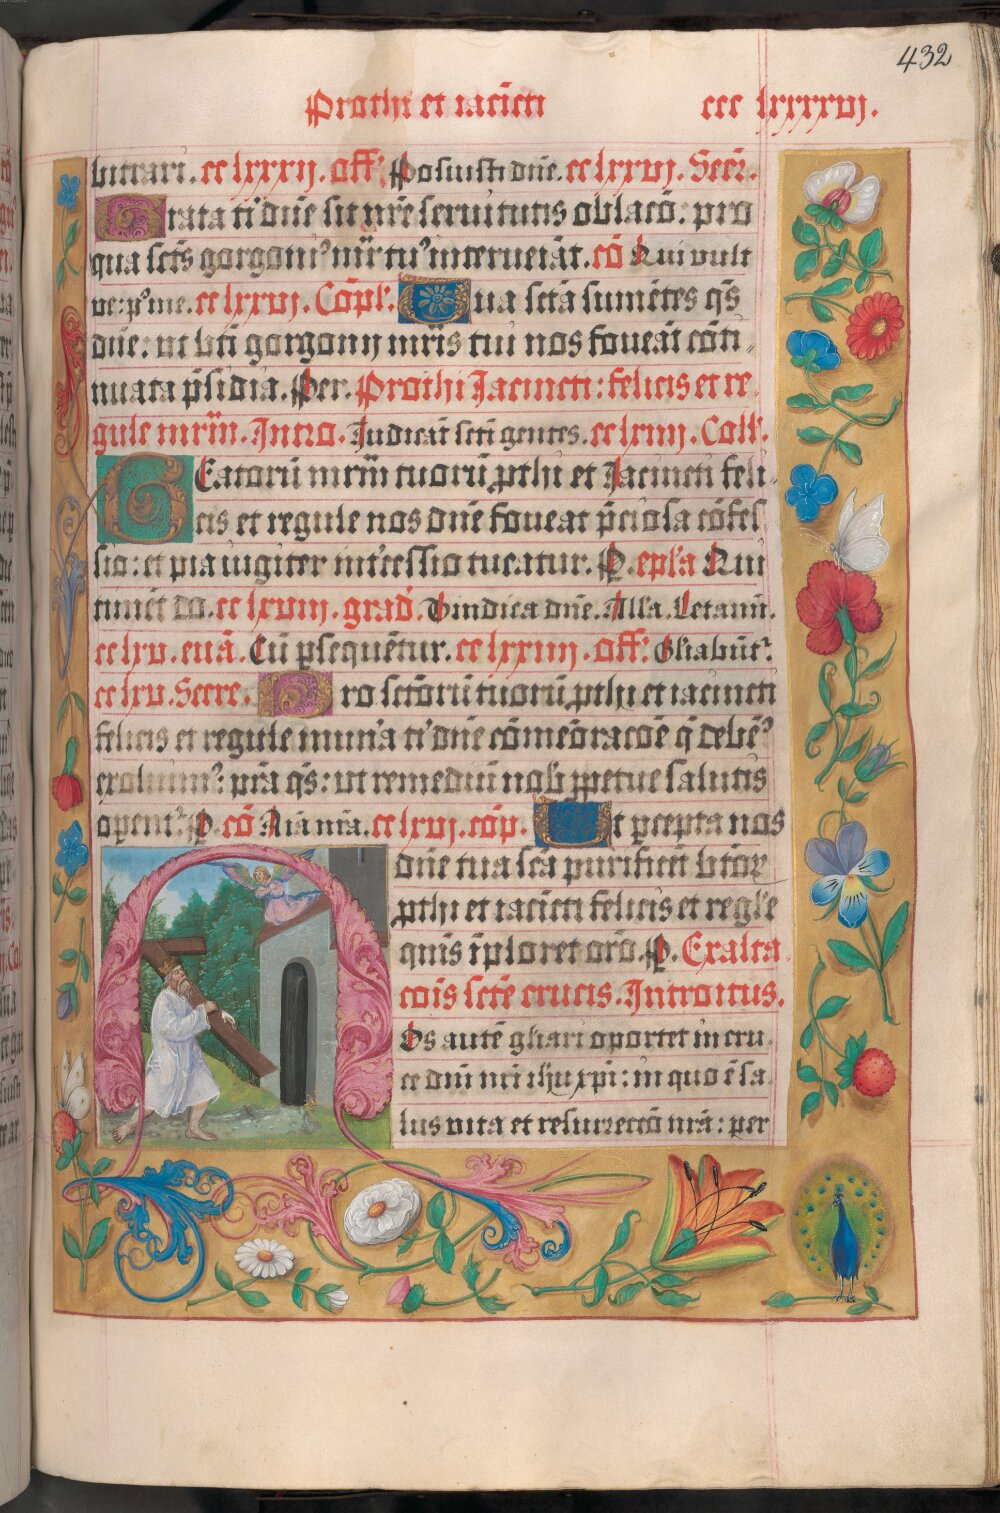 432
Prothi et iacĩcti ccc lxxxxvj.
bitrari. cc lxxxij. off̃. Posuisti dñe. cc lxxvj. Secr̃.
Grata ti' dñe sit nr̃e seruitutis oblacõ: pro
qua sct̃s gorgoni9 mr̃ tu9 interueiat. cõ Qui vult
ve: p9 me. cc lxxvj. Cõpl'. Tua sct̃a sumẽtes q̃s
dñe: ut bt̃i gorgonij mr̃is tui nos foueãt cõti
nuata p̃sidia. Per. Prothi Jacincti: felicis et re
gule mr̃m̃. Intro. Judicãt sct̃i gentes. cc lxiiij. Coll'.
Beatorũ mr̃m̃ tuorũ ꝓthi et Jacincti feli
cis et regule nos dñe foueat p̃ciosa cõfes
sio: et pia iugiter int'cessio tueatur. P. ep̃l'a Qui
timẽt do. cc lxviij. grad̃. Vindica dñe. All'a. Letam̃.
cc lxv. euã. Cũ ꝑsequẽtur. cc lxxiiij. off̃: Gl'iabũt2.
cc lxv. Secre. Pro sct̃orũ tuorũ ꝓthi et iacincti
felicis et regule mun'a ti' dñe cõmẽoracõe q̃ debẽ9
exoluim9: p̃ta q̃s: ut remediũ nob̃ ꝑpetue salutis
opent2. P. cõ Aĩa nr̃a. cc lxvj. cõp. Ut ꝑcepta nos
dñe tua sct̃a purificẽt bt̃oꝝ
ꝓthi et iacĩcti felicis et regl'e
quis ĩploret or̃o. P. Exalta
cõis sct̃e crucis. Introitus.
Nos autẽ gl'iari oportet in cru
ce dñi nr̃i ih̃u xp̃i: in quo ẽ sa
lus vita et resurrectõ nr̃a: per